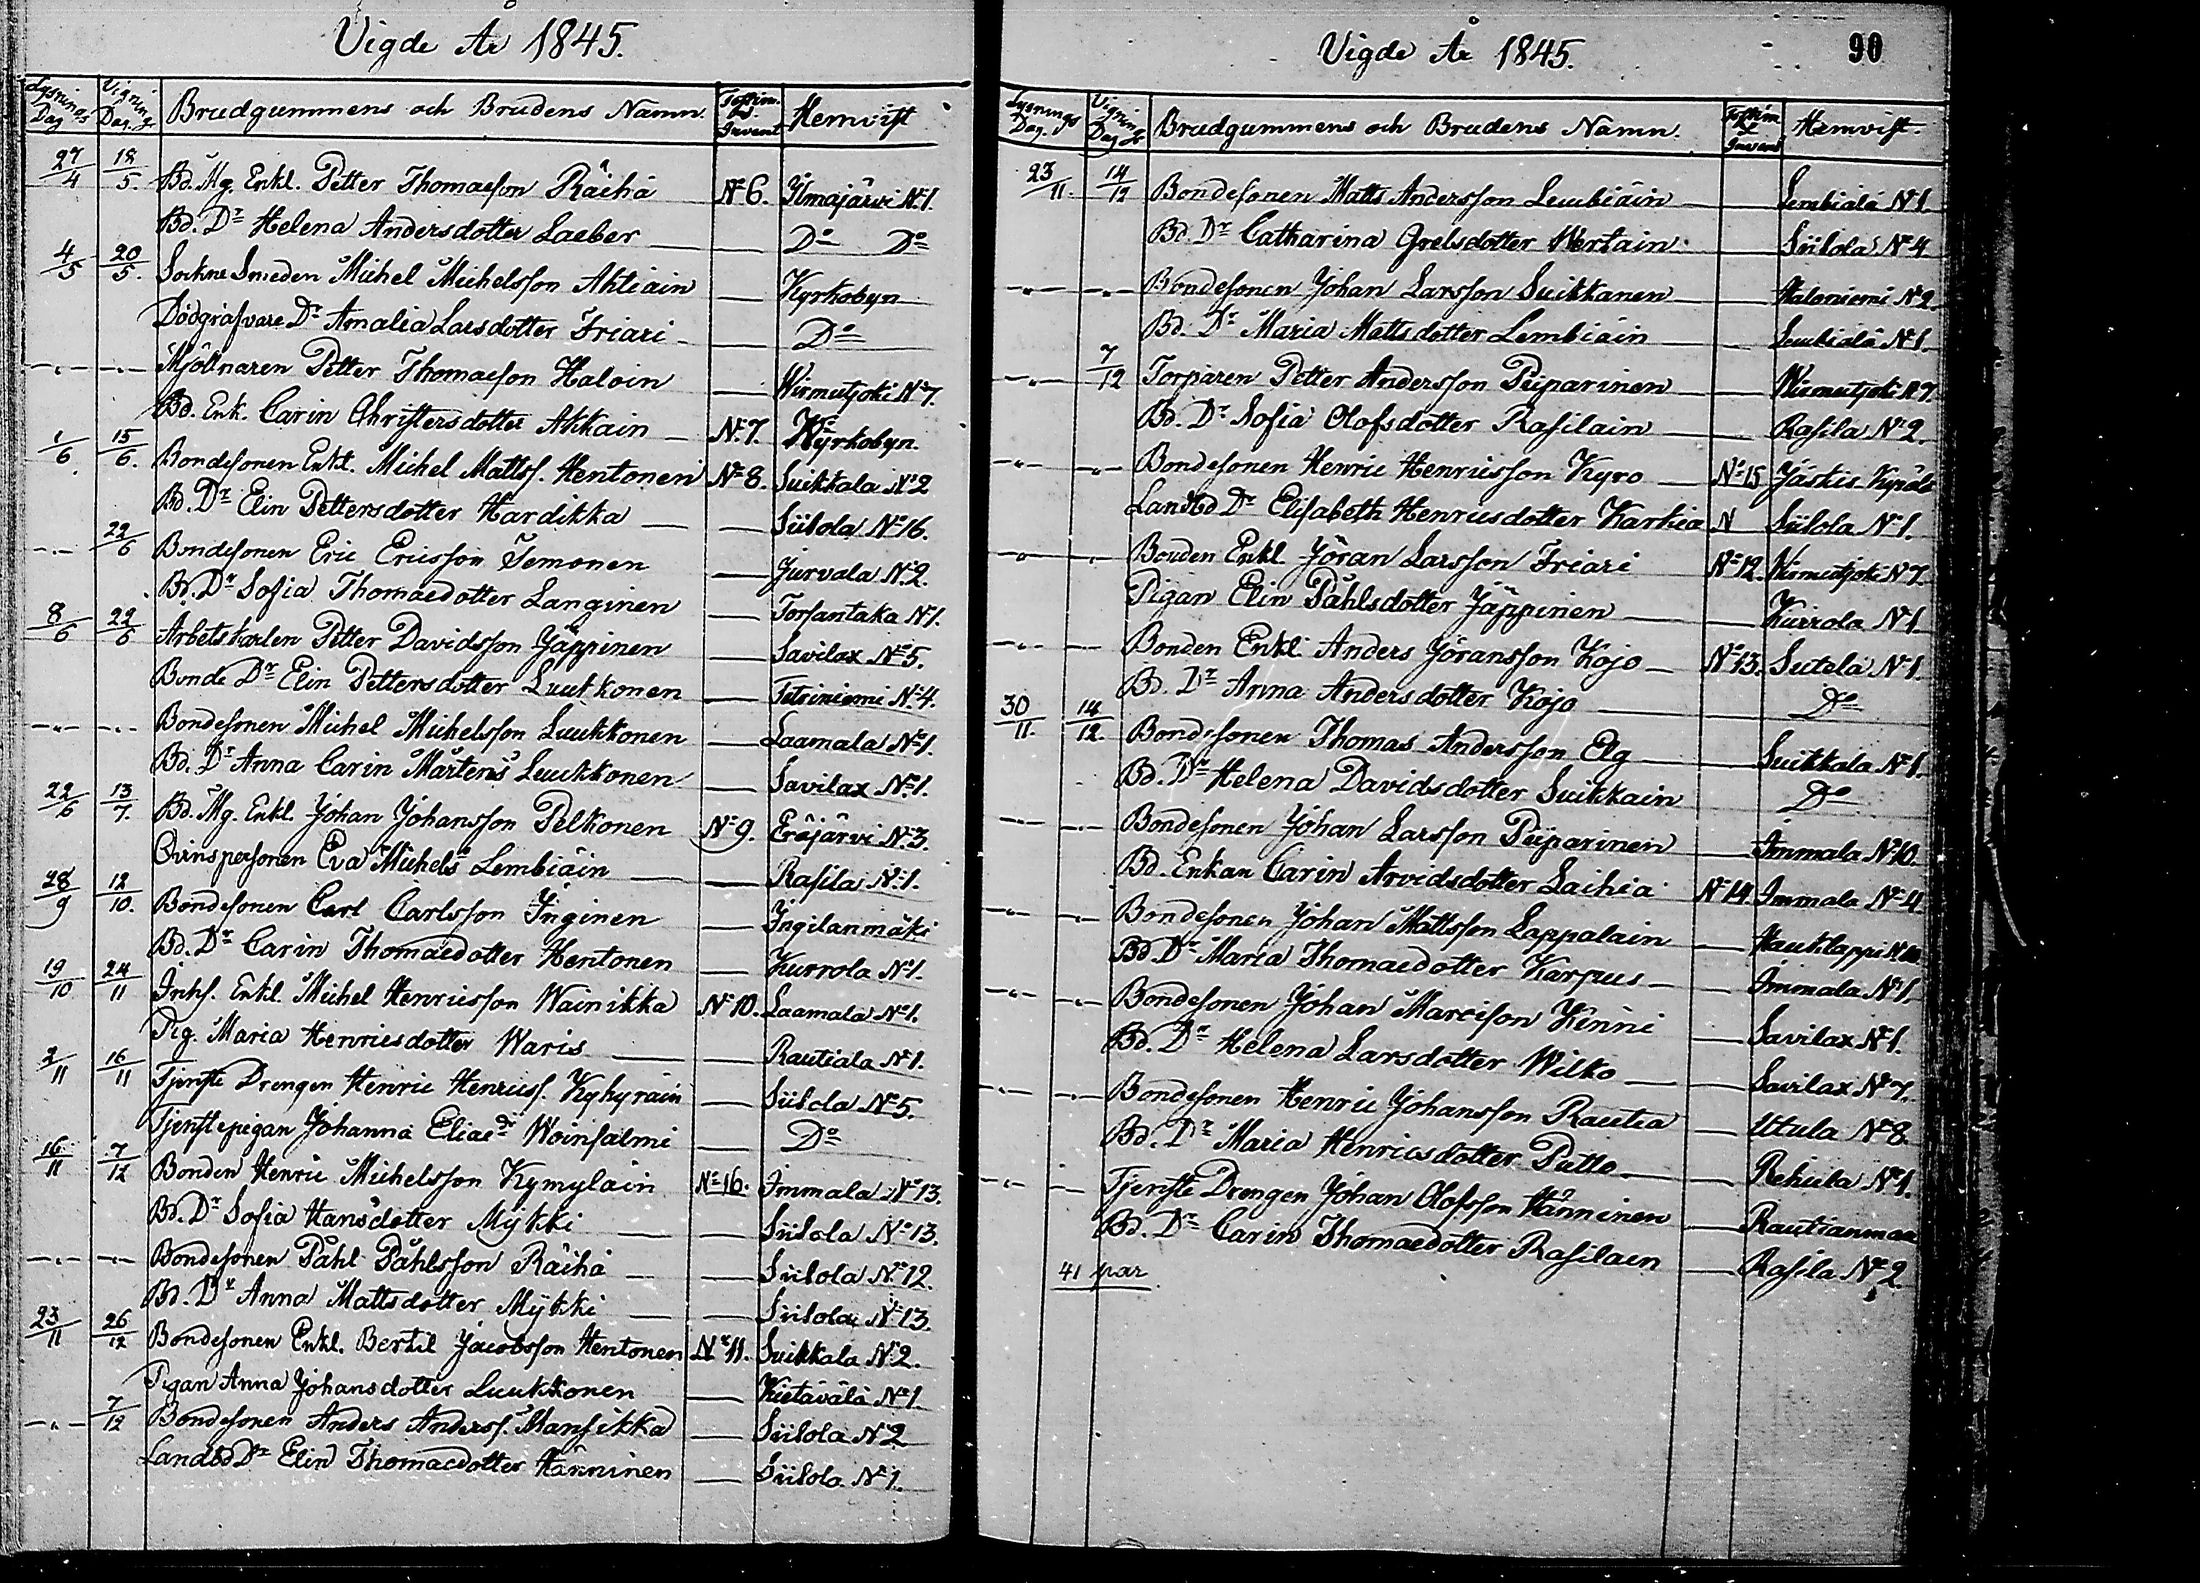 Vigde År 1845.
Lysnings Dag Vigning Dag. Brudgummens och Brudens Namn. Hemvist
27/4 18/5. Bd. Mg. Enkl. Petter Thomasson Räihä No 6. Ilmajärvi No 1.
Bd. Dr Helena Andersdotter Laeber Do Do
4/5 20/5. Sockne Smeden Michel Michelsson Ahtiain Kyrkobyn
Dödgräfvare Dr Amalia Larsdotter Friari Do
-"- -"- Mjölnaren Petter Thomasson Haloin Wirmutjoki No 7.
Bd. Enk. Carin Christersdotter Akkain No 7. Kyrkobyn.
1/6 15/6. Bondesonen Enkl. Michel Mattss. Hentonen No 8. Suikkala No 2
Bd. Dr Elin Pettersdotter Hardikka Siilola No 16.
-"- 22/6 Bondesonen Eric Ericsson Temonen Jurvala No 2.
Bd. Dr Sofia Thomaedotter Langinen Torsantaka No 1.
8/6 22/6 Arbetskarlen Petter Davidsson Jäppinen Savilax No 5.
Bonde Dr Elin Pettersdotter Luukkonen Tetriniemi No 4.
-"- -"- Bondesonen Michel Michelsson Luukkonen Laamala No 1.
Bd. Dr Anna Carin Mårtens Luukkonen Savilax No 1.
22/6 13/7. Bd. Mg. Enkl. Johan Johansson Pelkonen No 9. Eräjärvi No 3.
Qvinspersonen Eva Michels Lembiäin Rasila No 1.
28/9 12/10. Bondesonen Carl Carlsson Inginen Ingilanmäki
Bd. Dr Carin Thomaedotter Hentonen Kurrola No 1.
19/10 24/11 Inhs. Enkl. Michel Henricsson Wainikka No 10. Laamala No 1.
Pig. Maria Henricsdotter Waris Rautiala No 1.
2/11 16/11 Tjenste Drengen Henric Henricss. Kyhyräin Siilola No 5.
Tjenstepigan Johanna Eliaedr Woinsalmi Do
16/11 7/12 Bonden Henric Michelsson Kymyläin No 16. Immala No 13.
Bd. Dr Sofia Hansdotter Mykki Siilola No 13.
-"- -"- Bondesonen Påhl Påhlsson Räihä Siilola No 12.
Bd. Dr Anna Mattsdotter Mykki Siilola No 13.
23/11 26/12 Bondesonen Enkl. Bertil Jacobsson Hentonen No 11. Suikkala No 2.
Pigan Anna Johansdotter Luukkonen Kietävälä No 1
-"- 7/12 Bondesonen Anders Anderss. Mansikka Siilola No 2
Landbd Dr Elin Thomaedotter Hänninen Siilola No 1.
Vigde År 1845. 90
Lysnings Dag. Vignings Dag Brudgummens och Brudens Namn. Hemvist.
23/11. 14/12 Bondesonen Matts Andersson Lembiäin Lembiälä No 1.
Bd. Dr Catharina Grelsdotter Wertain Siilola No 4.
-"- -"- Bondesonen Johan Larsson Suikkanen Haloniemi No 2
Bd. Dr Maria Mattsdotter Lembiäin Lembiälä No 1.
-"- 7/12 Torparen Petter Andersson Piiparinen Wirmutjoki No 7.
Bd. Dr Sofia Olofsdotter Rasilain Rasila No 2.
-"- -"- Bondesonen Henric Henricsson Kyro No 15 Jäskis
Landbd Dr Elisabeth Henricsdotter Karkia N Siilola No 1.
-"- -"- Bonden Enkl Jöran Larsson Friari No 12. Wirmutjoki No 7.
Pigan Elin Påhlsdotter Jäppinen Kurrola No 1.
-"- -"- Bonden Enkl Anders Jöransson Kojo No 13. Sutela No 1.
Bd. Dr Anna Andersdotter Kojo Do
30/11. 14/12. Bondesonen Thomas Andersson Elg Suikkala No 1.
Bd. Dr Helena Davidsdotter Suikkain Do
-"- -"- Bondesonen Johan Larsson Piiparinen Immala No 10.
Bd. Enkan Carin Arvidsdotter Laihia No 14 Immala No 4.
-"- -"- Bondesonen Johan Mattsson Lappalain
Bd. Dr Maria Thomaedotter Karpus Immala No 1.
-"- -"- Bondesonen Johan Marcison Kinni Savilax No 1.
Bd. Dr Helena Larsdotter Wilko Savilax No 7.
-"- -"- Bondesonen Henric Johansson Rautia Utula No 8.
Bd. Dr Maria Henricsdotter Putto Rehula No 1.
-"- -"- Tjenste Drengen Johan Olofsson Hänninen Rautianmaa
Bd. Dr Carin Thomaedotter Rasilaen Rasila No 2
41 par